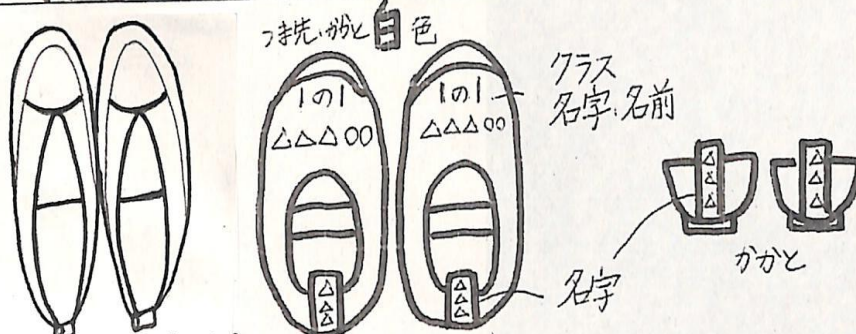 つま先・かかと白色
1の1
△△△○○
1の1
△△△○○
クラス
名字・名前
△△△
△△△
名字
△△△
△△△
かかと